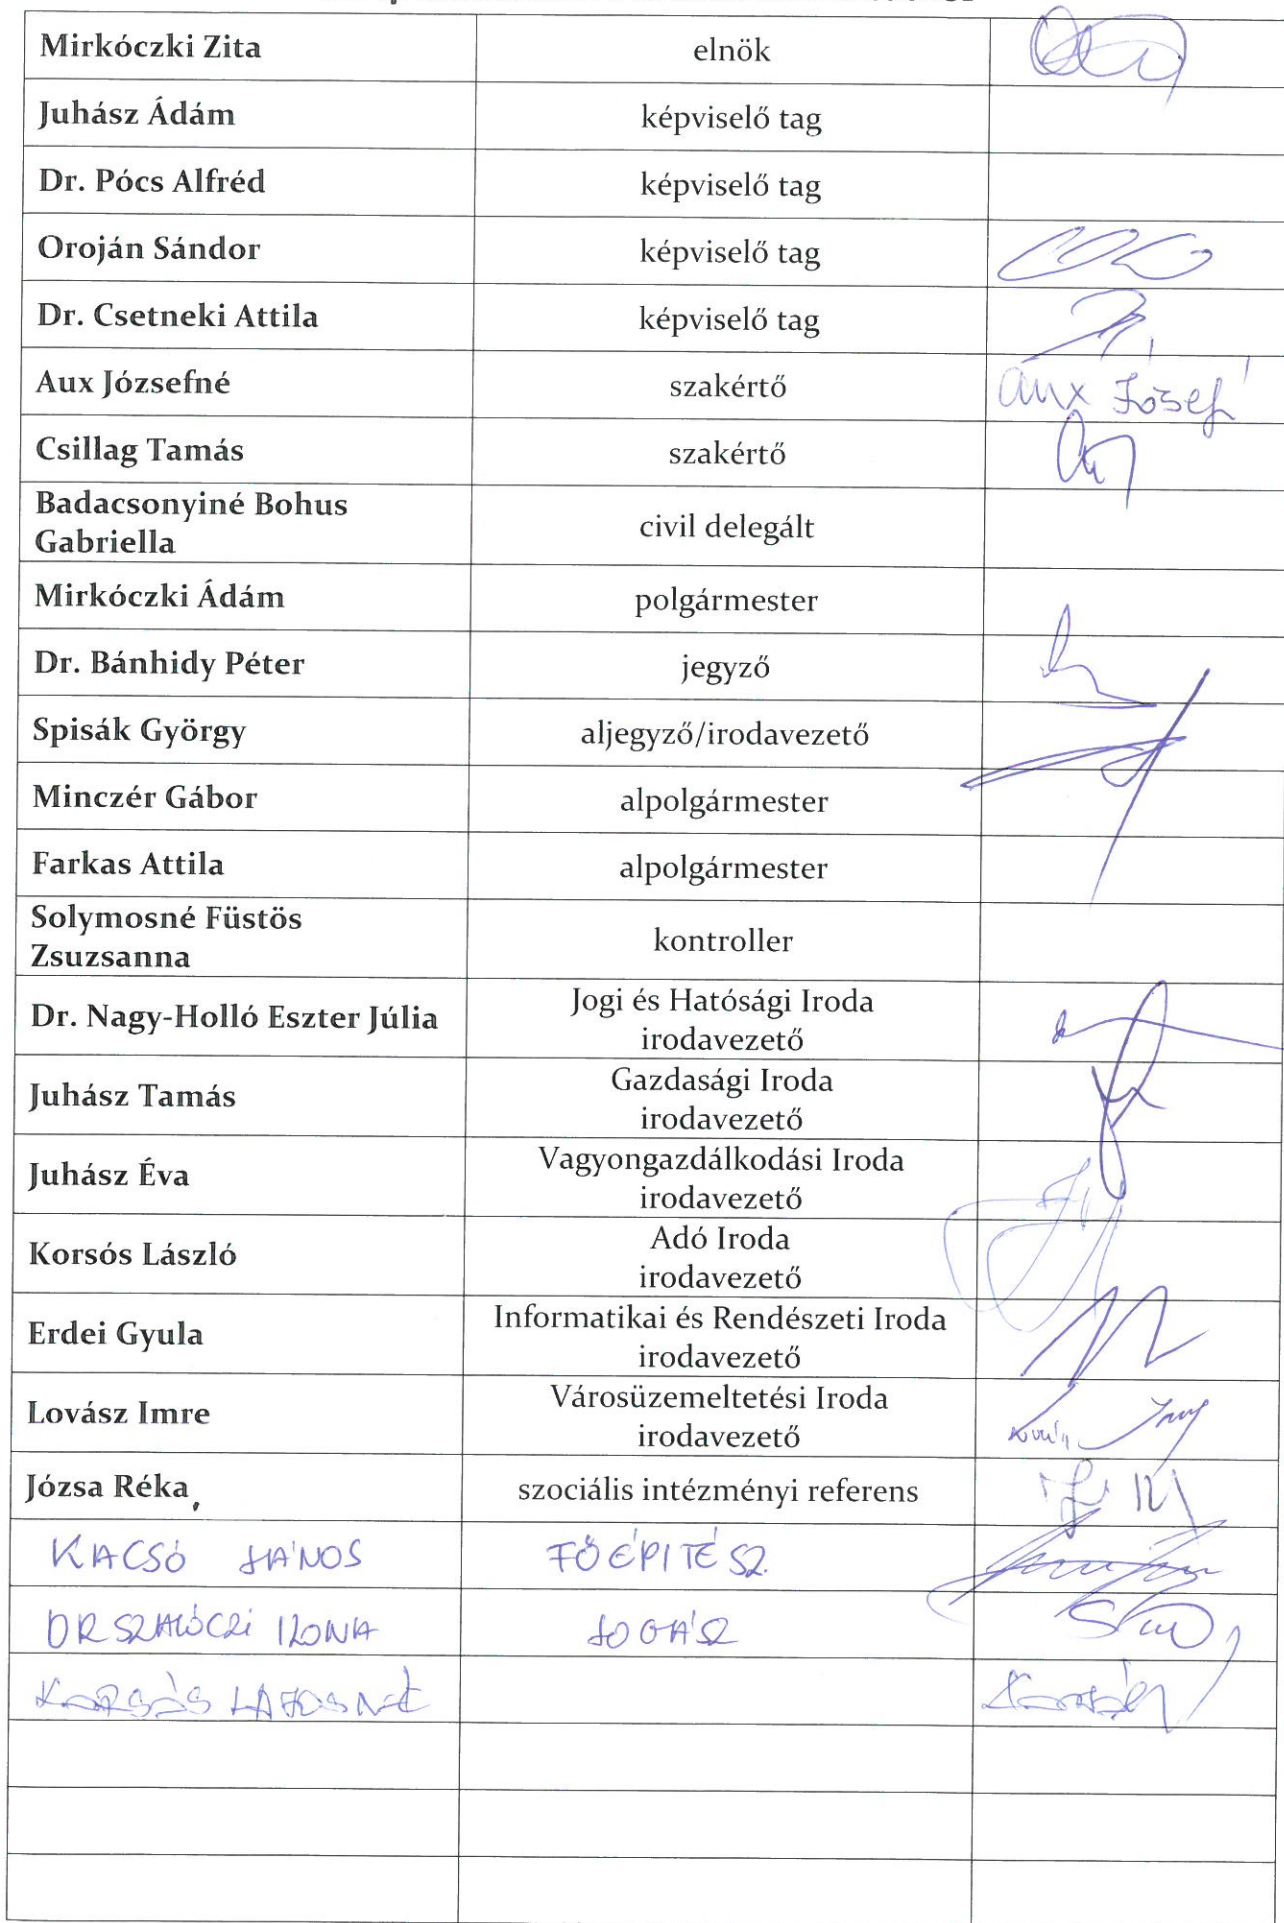 Mirkóczki Zita elnök
Juhász Ádám képviselő tag
Dr. Pócs Alfréd képviselő tag
Oroján Sándor képviselő tag
Dr. Csetneki Attila képviselő tag
Aux Józsefné szakértő Aux József
Csillag Tamás szakértő
Badacsonyiné Bohus
Gabriella
civil delegált
Mirkóczki Ádám polgármester
Dr. Bánhidy Péter jegyző
Spisák György aljegyző/irodavezető
Minczér Gábor alpolgármester
Farkas Attila alpolgármester
Solymosné Füstös
Zsuzsanna
kontroller
Dr. Nagy-Holló Eszter Júlia
Jogi és Hatósági Iroda
irodavezető
Juhász Tamás
Gazdasági Iroda
irodavezető
Juhász Éva
Vagyongazdálkodási Iroda
irodavezető
Korsós László
Adó Iroda
irodavezető
Erdei Gyula
Informatikai és Rendészeti Iroda
irodavezető
Lovász Imre
Városüzemeltetési Iroda
irodavezető
Józsa Réka szociális intézményi referens
KACSÓ JÁNOS FŐÉPITÉSZ
DR SZALÓCZI ILONA JOGÁSZ
KORSÓS LAJOSNÉ